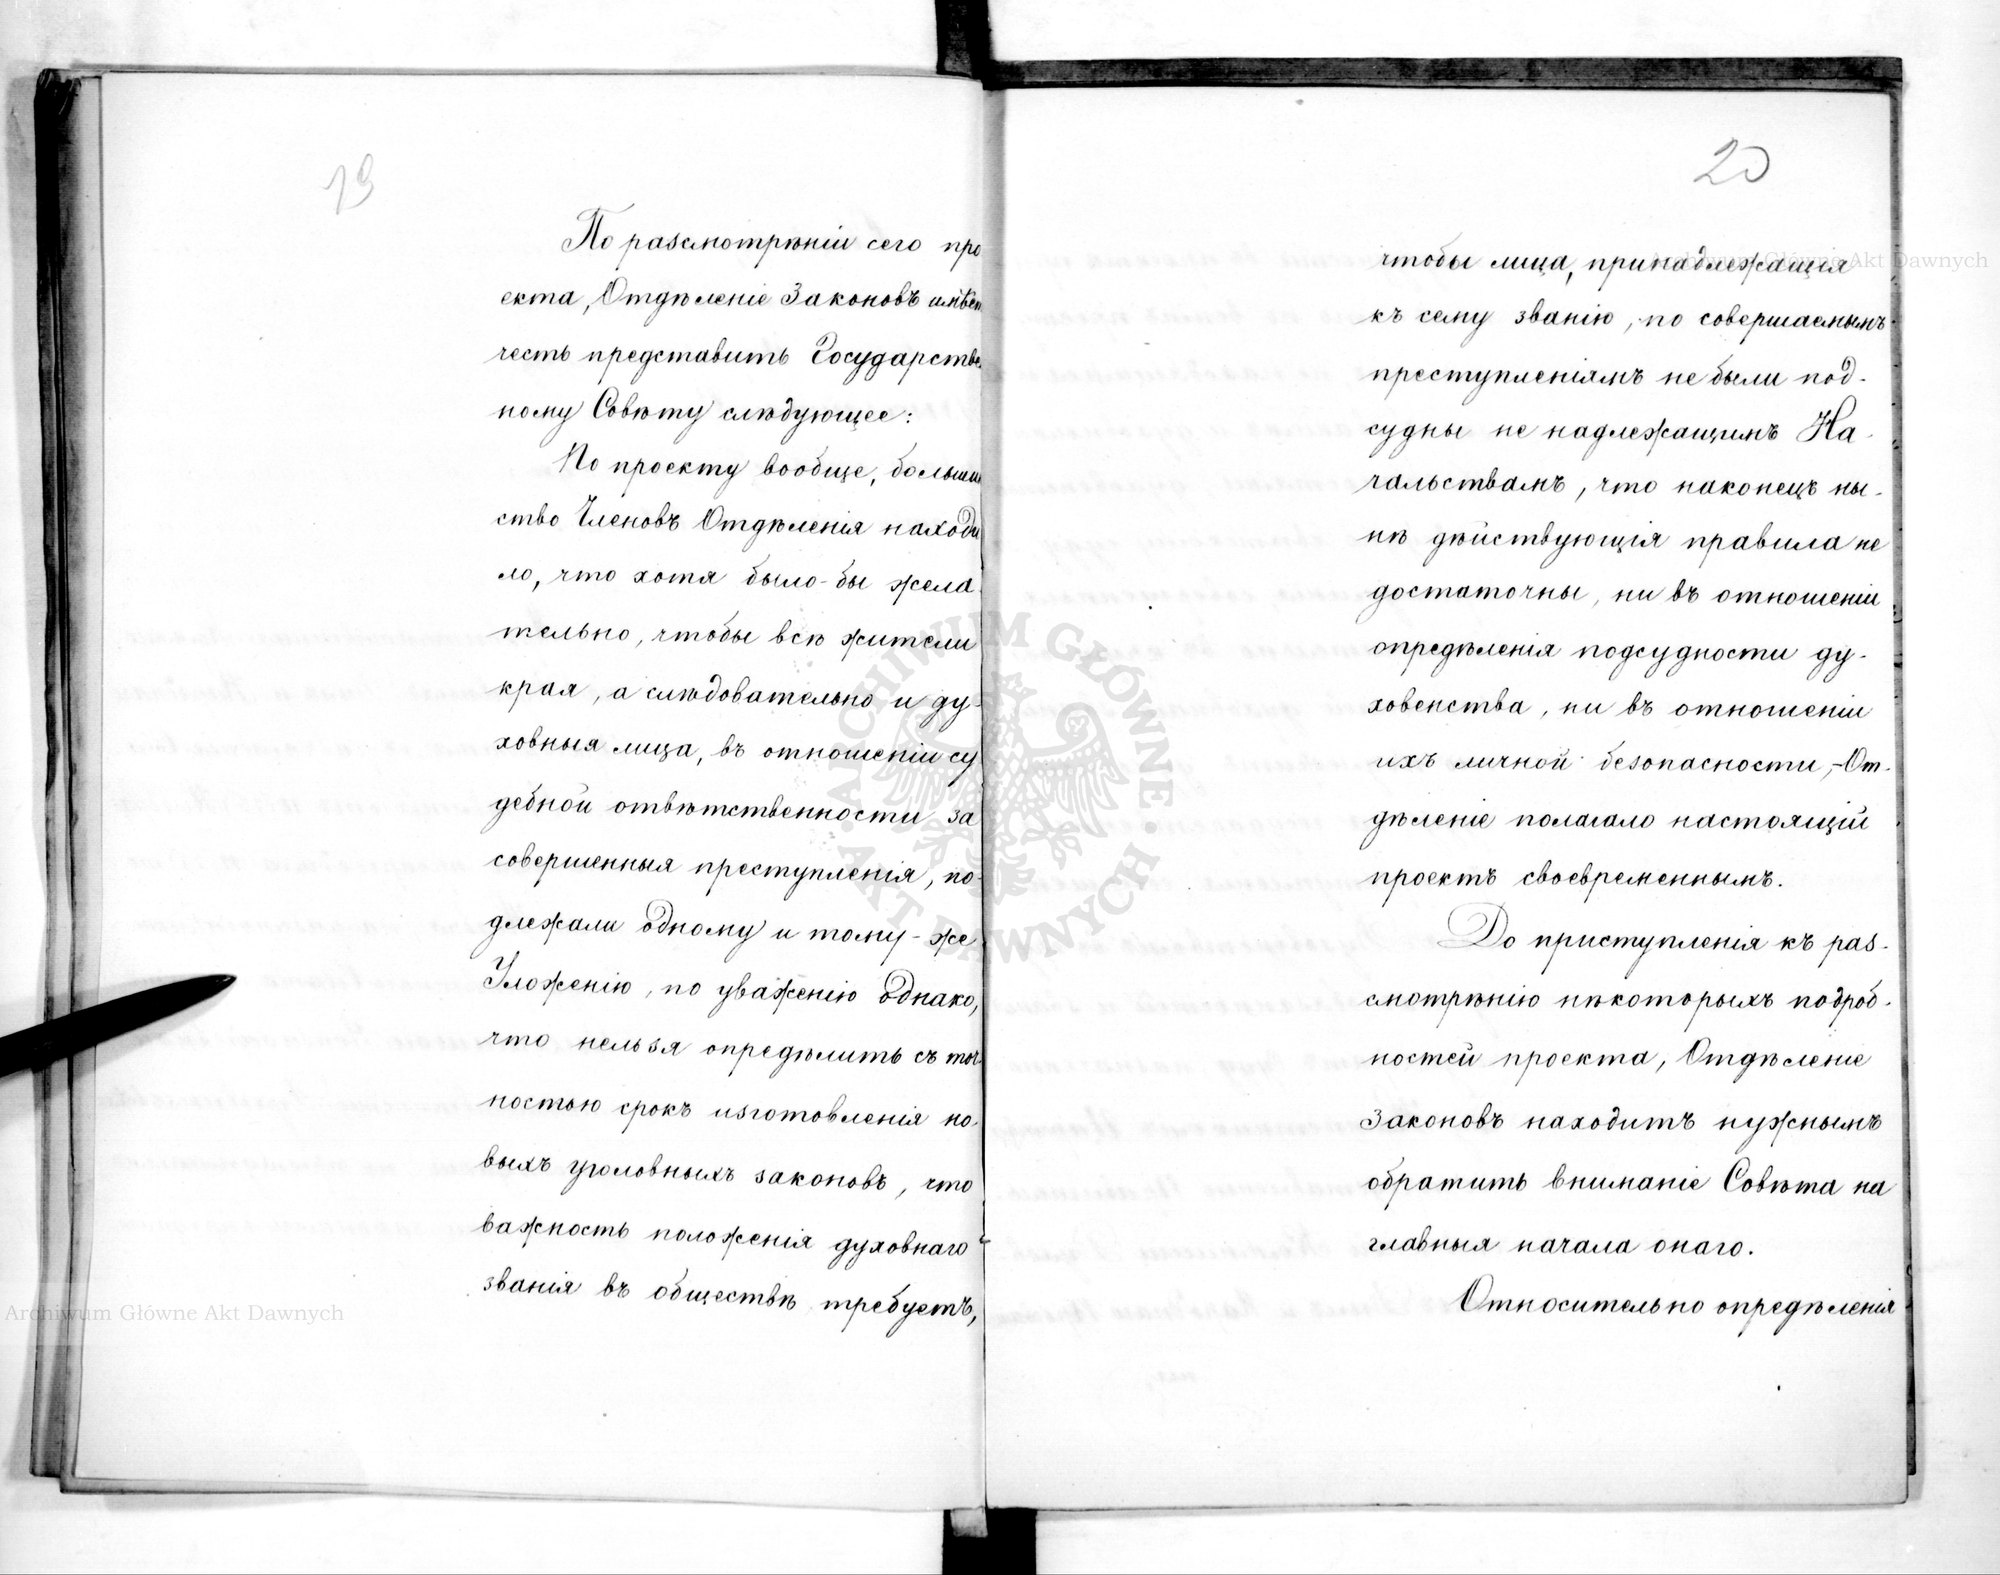 19
По разсмотрѣніи сего про
екта, Отдѣленіе Законовъ имѣетъ
честь представить Государствен
ному Совѣту слѣдующее:
По проекту вообще, большин
ство Членовъ Отдѣленія находи
ло, что хотя было-бы жела-
тельно, чтобы всѣ жители
края, а слѣдовательно и ду-
ховныя лица, въ отношеніи су
дебной отвѣтственности за
совершенныя преступленія, по-
длежали одному и тому-же
Уложенію, по уваженію однако,
что нельзя опредѣлить съ точ
ностью срокъ изготовленія но-
выхъ уголовныхъ законовъ, что
важность положенія духовнаго
званія въ обществѣ требуетъ,
20
чтобы лица, принадлежащія
къ сему званію, по совершаемымъ
преступленіямъ не были под-
судны не надлежащимъ На-
чальствамъ, что наконецъ ны-
нѣ дѣйствующія правила не
достаточны, ни въ отношеніи
опредѣленія подсудности ду-
ховенства, ни въ отношеніи
ихъ личной безопасности,-От-
дѣленіе полагало настоящій
проектъ своевременнымъ.
До приступленія къ раз-
смотрѣнію нѣкоторыхъ подроб-
ностей проекта, Отдѣленіе
Законовъ находитъ нужнымъ
обратить вниманіе Совѣта на
главныя начала онаго.
Относительно опредѣленія
Archiwum Główne Akt Dawnych
Archiwum Główne Akt Dawnych
ARCHIWUM GŁÓWNE AKT DAWNYCH